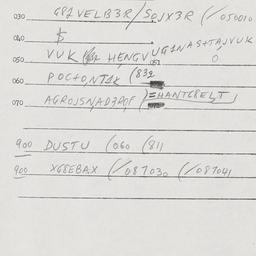 030 G81VELB3R/S0JX3R (/050010
040 $
050 VUK HENGVUG1NAS+TAJVUK
051 0
060 POC+ONT1X (832
070 AGROJSNAD3P0F )=HANTC8ELT
900 DUSTU (060 (811
900 XG8EBAX (/087030 (/087041